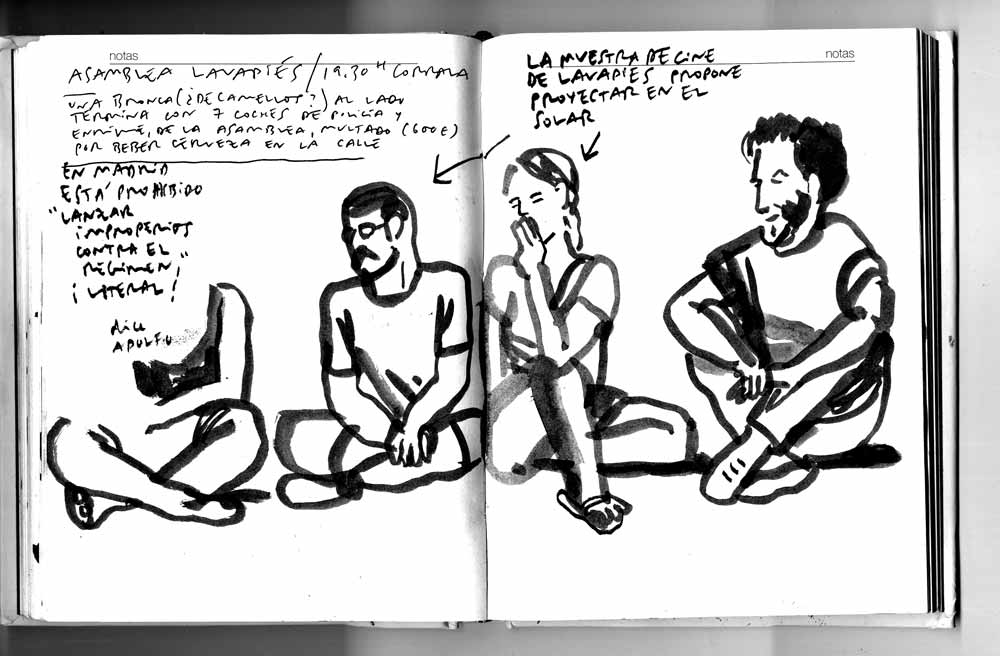 notas
ASAMBLEA LAVAPIÉS / 19.30 H CORRALA
UNA BRONCA (¿DE CAMELLOS?) AL LADO
TERMINA CON 7 COCHES DE POLICÍA Y
ENRIQUE, DE LA ASAMBLEA, MULTADO (600€)
POR BEBER CERVEZA EN LA CALLE
EN MADRID
ESTÁ PROHIBIDO
"LANZAR
IMPROPERIOS
CONTRA EL
RÉGIMEN",
¡LITERAL!
DICE
ADOLFO
notas
LA MUESTRA DE CINE
DE LAVAPIES PROPONE
PROYECTAR EN EL
SOLAR